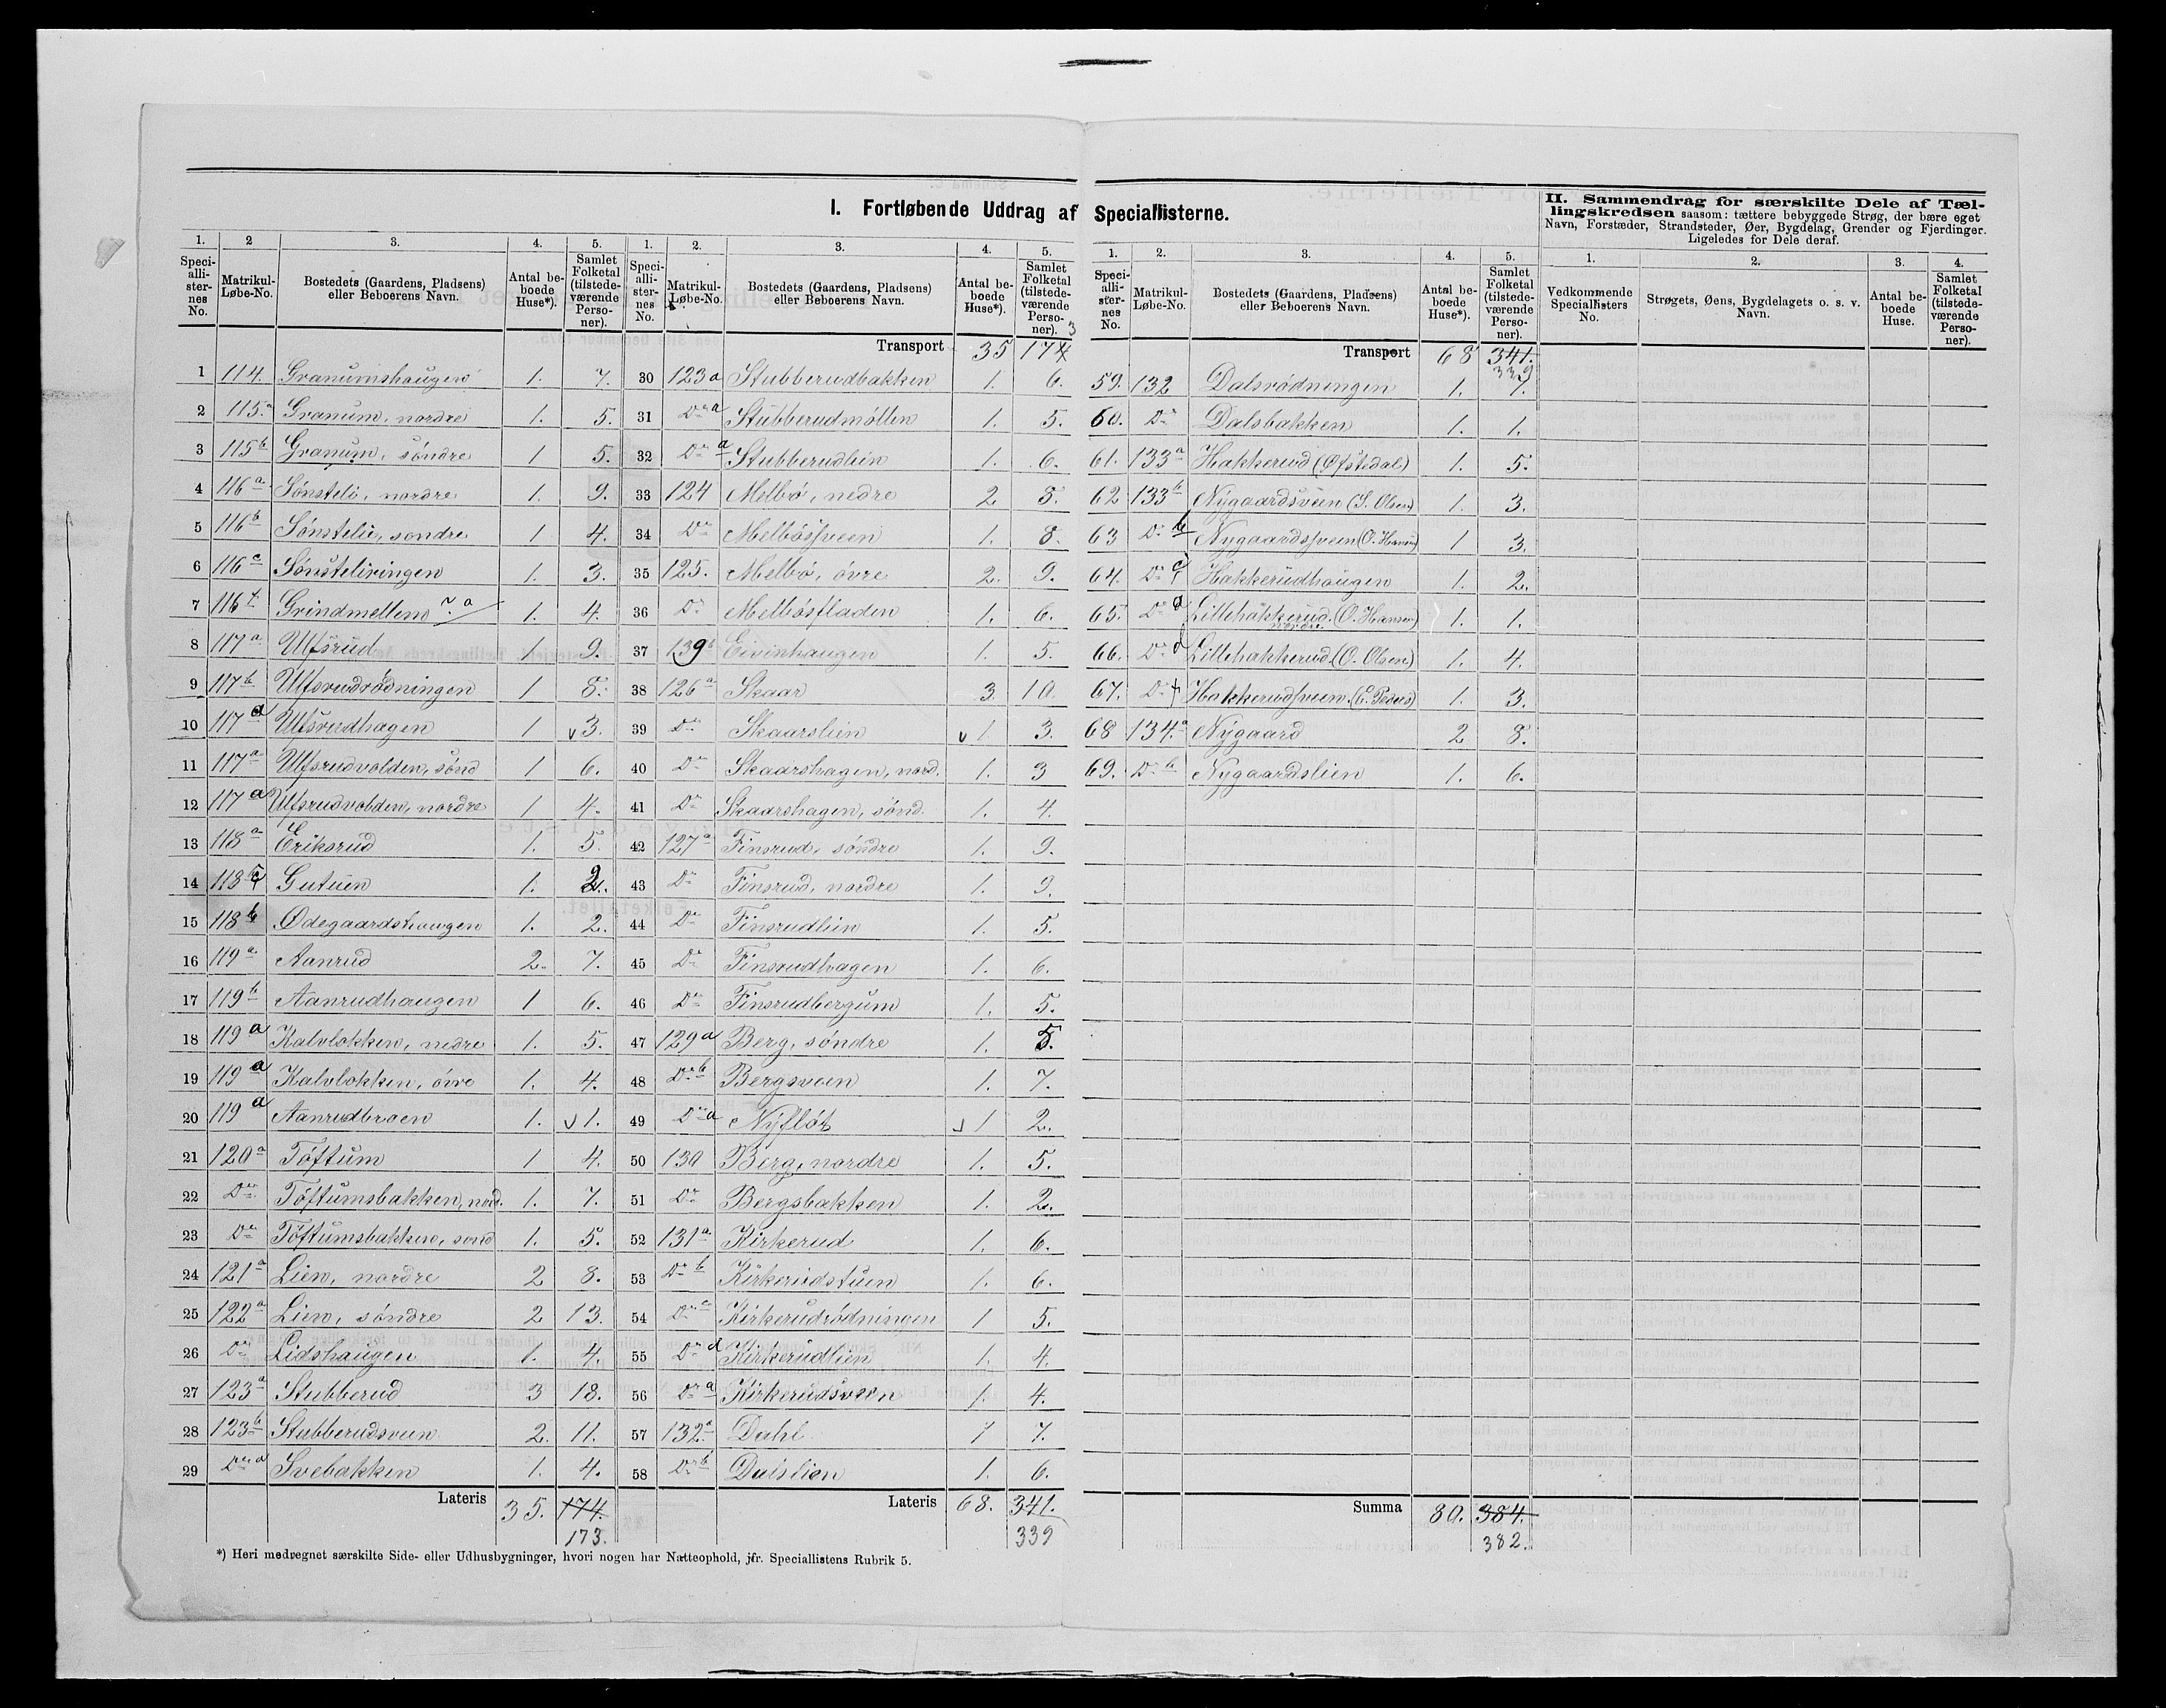 I. Fortløbende Uddrag af Speciallisterne.
II. Sammendrag for særskilte Dele af Tællingskredsen saasom: tættere bebyggede Strøg, der bære eget Navn, Forstæder, Strandsteder, Øer, Bygdelag, Grender og Fjerdinger. Ligeledes for Dele deraf.
1. 2 3. 4. 5.
Speciallisternes No. Matrikul-Løbe-No. Bostedets (Gaardens, Pladsens) eller Beboerens Navn. Antal beboede Huse*). Samlet Folketal (tilstedeværende Personer).
1 114. Granumshaugen 1. 7.
2 115.a Granum, nordre 1. 5.
3 115b Granum, søndre 1 5.
4 116a Sønsteli, nordre 1. 9.
5 116b Sønstelie, søndre 1 4.
6 116c Sønsteliringen 1. 3.
7 116 Grindmellem 1. 4.
8 117a Ulfsrud 1 9.
9 117b Ulfsrudrødningen 1 8.
10 117d Ulfsrudhagen 1 3.
11 117a Ulfsrudvolden, sønd 1 6.
12 117a Ulfsrudvolden, nordre 1 4.
13 118a Eriksrud 1. 5.
14 118c Gutuen 1. 2.
15 118b Ødegaardshaugen 1. 2.
16 119a Aanrud 2. 7.
17 119b Aanrudhaugen 1 6.
18 119a Kalvløkken, nedre 1. 5.
19 119a Kalvløkken, øvre 1. 4.
20 119a Aanrudbroen 1. 1.
21 120a Tøftum 1 4.
22 Do Tøftumsbakken, nord. 1. 7.
23 Do Tøftumsbakken, sønd 1. 5.
24 121a Lien, nordre 2 8.
25 122a Lien, søndre 2 13.
26 Do Lidshaugen 1. 4.
27 123a Stubberud 3 18.
28 123b Stubberudsveen 2. 11.
29 Do a Svebakken 1. 4.
Lateris 35. 174.
173.
1. 2. 3. 4. 5.
Speciallisternes No. Matrikul-Løbe-No. Bostedets (Gaardens, Pladsens) eller Beboerens Navn. Antal beboede Huse*). Samlet Folketal (tilstedeværende Personer).
Transport 35 174
3
30 123a Stubberudbakken 1. 6.
31 Do a Stubberudmøllen 1. 5.
32 Do a Stubberudlien 1. 6.
33 124 Melbø, nedre 2 8.
34 Do Melbøsveen 1. 8.
35 125. Melbø, øvre 2. 9.
36 Do Melbøsfladen 1. 6.
37 139 Eivinhaugen 1. 5.
38 126a Skaar 3 10.
39 Do Skaarslien 1 3.
40 Do Skaarshagen, nord. 1. 3
41 Do Skaarshagen, sønd. 1. 4.
42 127a Finsrud, søndre 1. 9.
43 Do Finsrud, nordre 1. 9.
44 Do Finsrudlien 1. 5.
45 Do Finsrudhagen 1. 6.
46 Do Finsrudbergum 1. 5.
47 129a Berg, søndre 1. 5.
48 Do b Bergsveen 1. 7.
49 Do a Nyfløt 1 2.
50 130 Berg, nordre 1. 5.
51 Do Bergsbakken 1. 2.
52 131a Kirkerud 1. 6.
53 Do b Kirkerudstuen 1. 6.
54 Do c Kirkerudrødningen 1 5.
55 Do d Kirkerudlien 1. 4.
56 Do a Kirkerudsveen 1. 4.
57 132a Dahl 1 7.
58 Do b Dalslien 1. 6.
Lateris 68. 341.
339
*) Heri medregnet særskilte Side- eller Udhusbygninger, hvori nogen har Natteophold, jfr. Speciallistens Rubrik 5.
1. 2. 3. 4. 5.
Speciallisternes No. Matrikul-Løbe-No. Bostedets (Gaardens, Pladsens) eller Beboerens Navn. Antal beboede Huse*). Samlet Folketal (tilstedeværende Personer).
Transport 68 341.
339
59. 132 Dalsrødningen 1. 7.
60. Do Dalsbakken 1. 1.
61. 133a Hakkerud (Ofstedal) 1. 5.
62. 133b Nygaardsveen (S. Olsen) 1. 3.
63 Do b Nygaardsveen (O. Hansen) 1 3.
64. Do c Hakkerudhaugen 1. 2.
65. Do d Lillehakkerud (O. Hansen) 1. 1.
nordre
66. Do d Lillehakkerud (O. Olsen) 1. 4.
67. Do Hakkerudsveen. 1. 3.
68 134.a Nygaard 2 8.
69. Do b Nygaardslien 1. 6.
Summa 80. 384.
382.
1. 2. 3. 4.
Vedkommende Speciallisters No. Strøgets, Øens, Bygdelagets o. s. v. Navn. Antal beboede Huse. Samlet Folketal (tilstedeværende Personer).